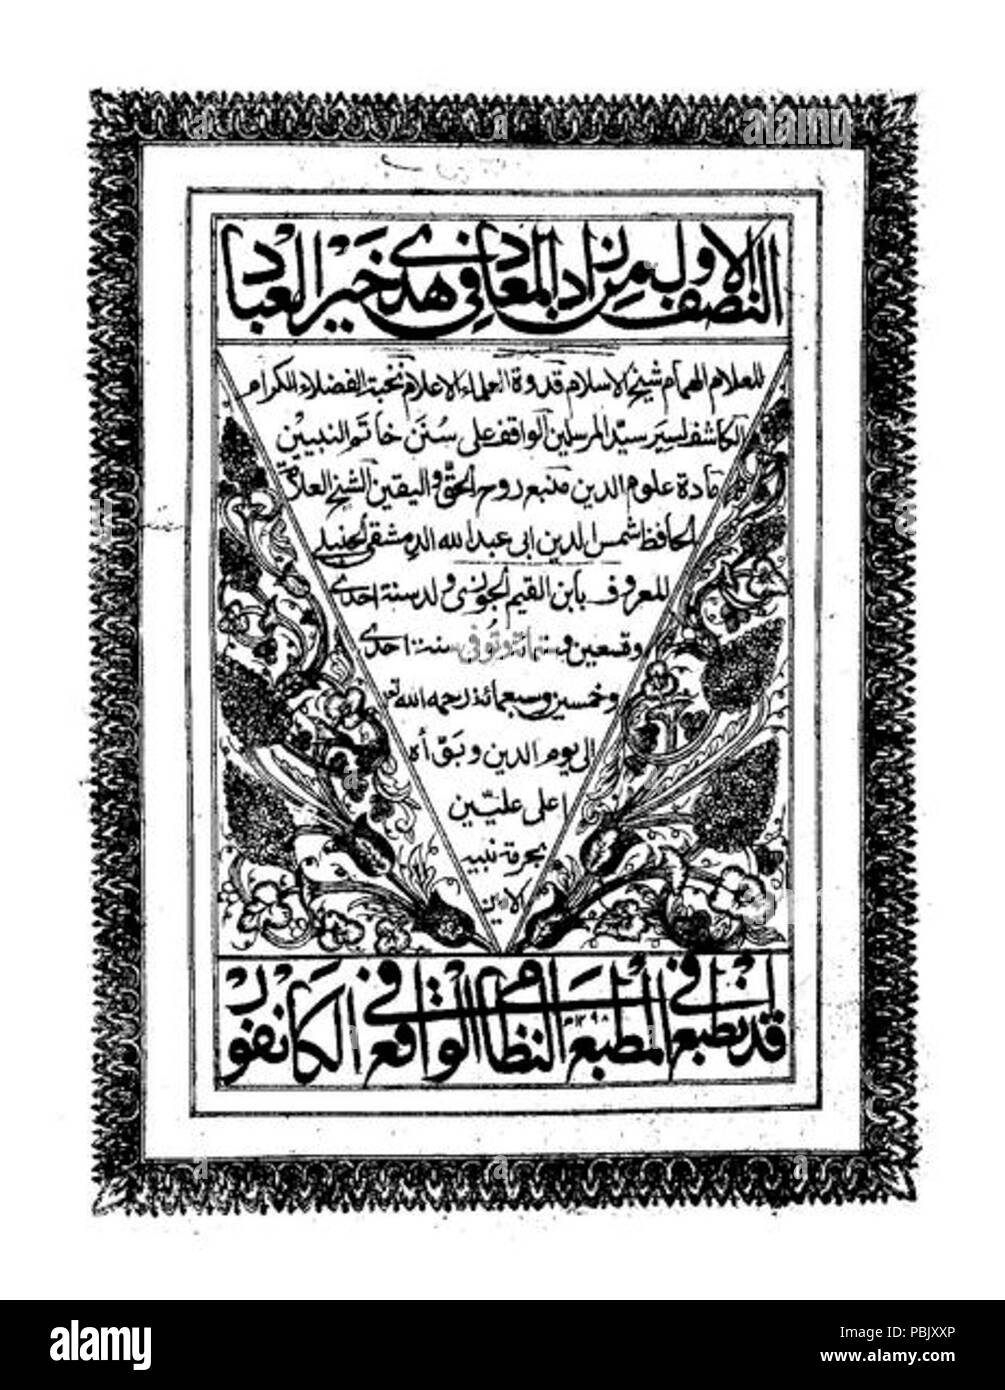 النصف الاول من زاد المعاد في هدى خير العباد
للعلام الهمام شيخ الاسلام قدوة العلماء الاعلام نخبة الفضلاء الكرام
الكاشف لسير سيد المرسلين الواقف على سنن خاتم النبيين
علوم الدين منبع روح الحق واليقين الشيخ العلامة
الحافظ شمس الدين ابى عبد الله الدمشقى الحنبلى
المعروف بابن القيم الجوزى ولد سنة احدى
وتسعين وستمائة وتوفى سنة احدى
وخمسين وسبعمائة رحمه الله تعالى
الى يوم الدين وبوّأه
اعلى عليّين
بحرمة نبيه
الامين
قد طبع فى المطبع النظامى الواقع فى الكانفور
١٢٩٨
alamy
alamy
Image ID: PBJXXP
www.alamy.com